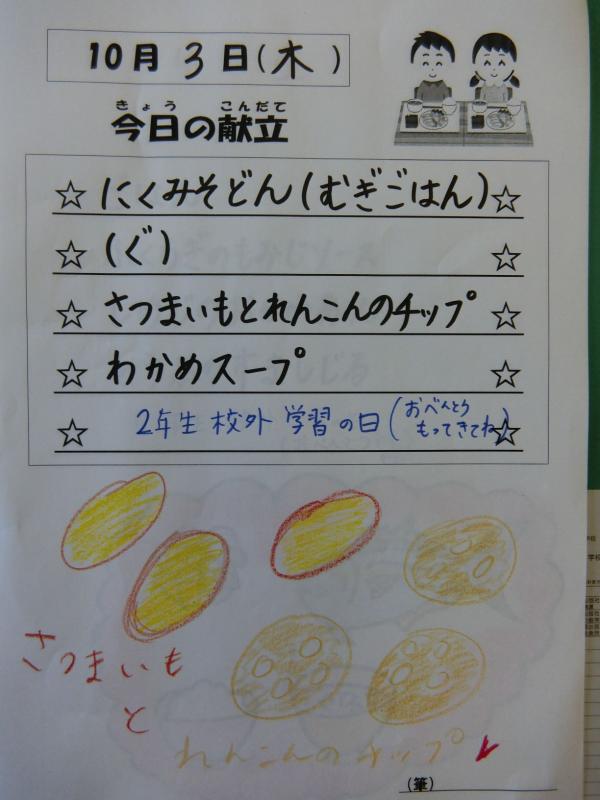 10月 3日(木)
きょう こんだて
今日の献立
☆ にくみそどん(むぎごはん) ☆
☆ (ぐ) ☆
☆ さつまいもとれんこんのチップ ☆
☆ わかめスープ ☆
☆ 2年生 校外 学習の日(おべんとう もってきてね) ☆
さつまいも
と
れんこんのチップ
(筆)